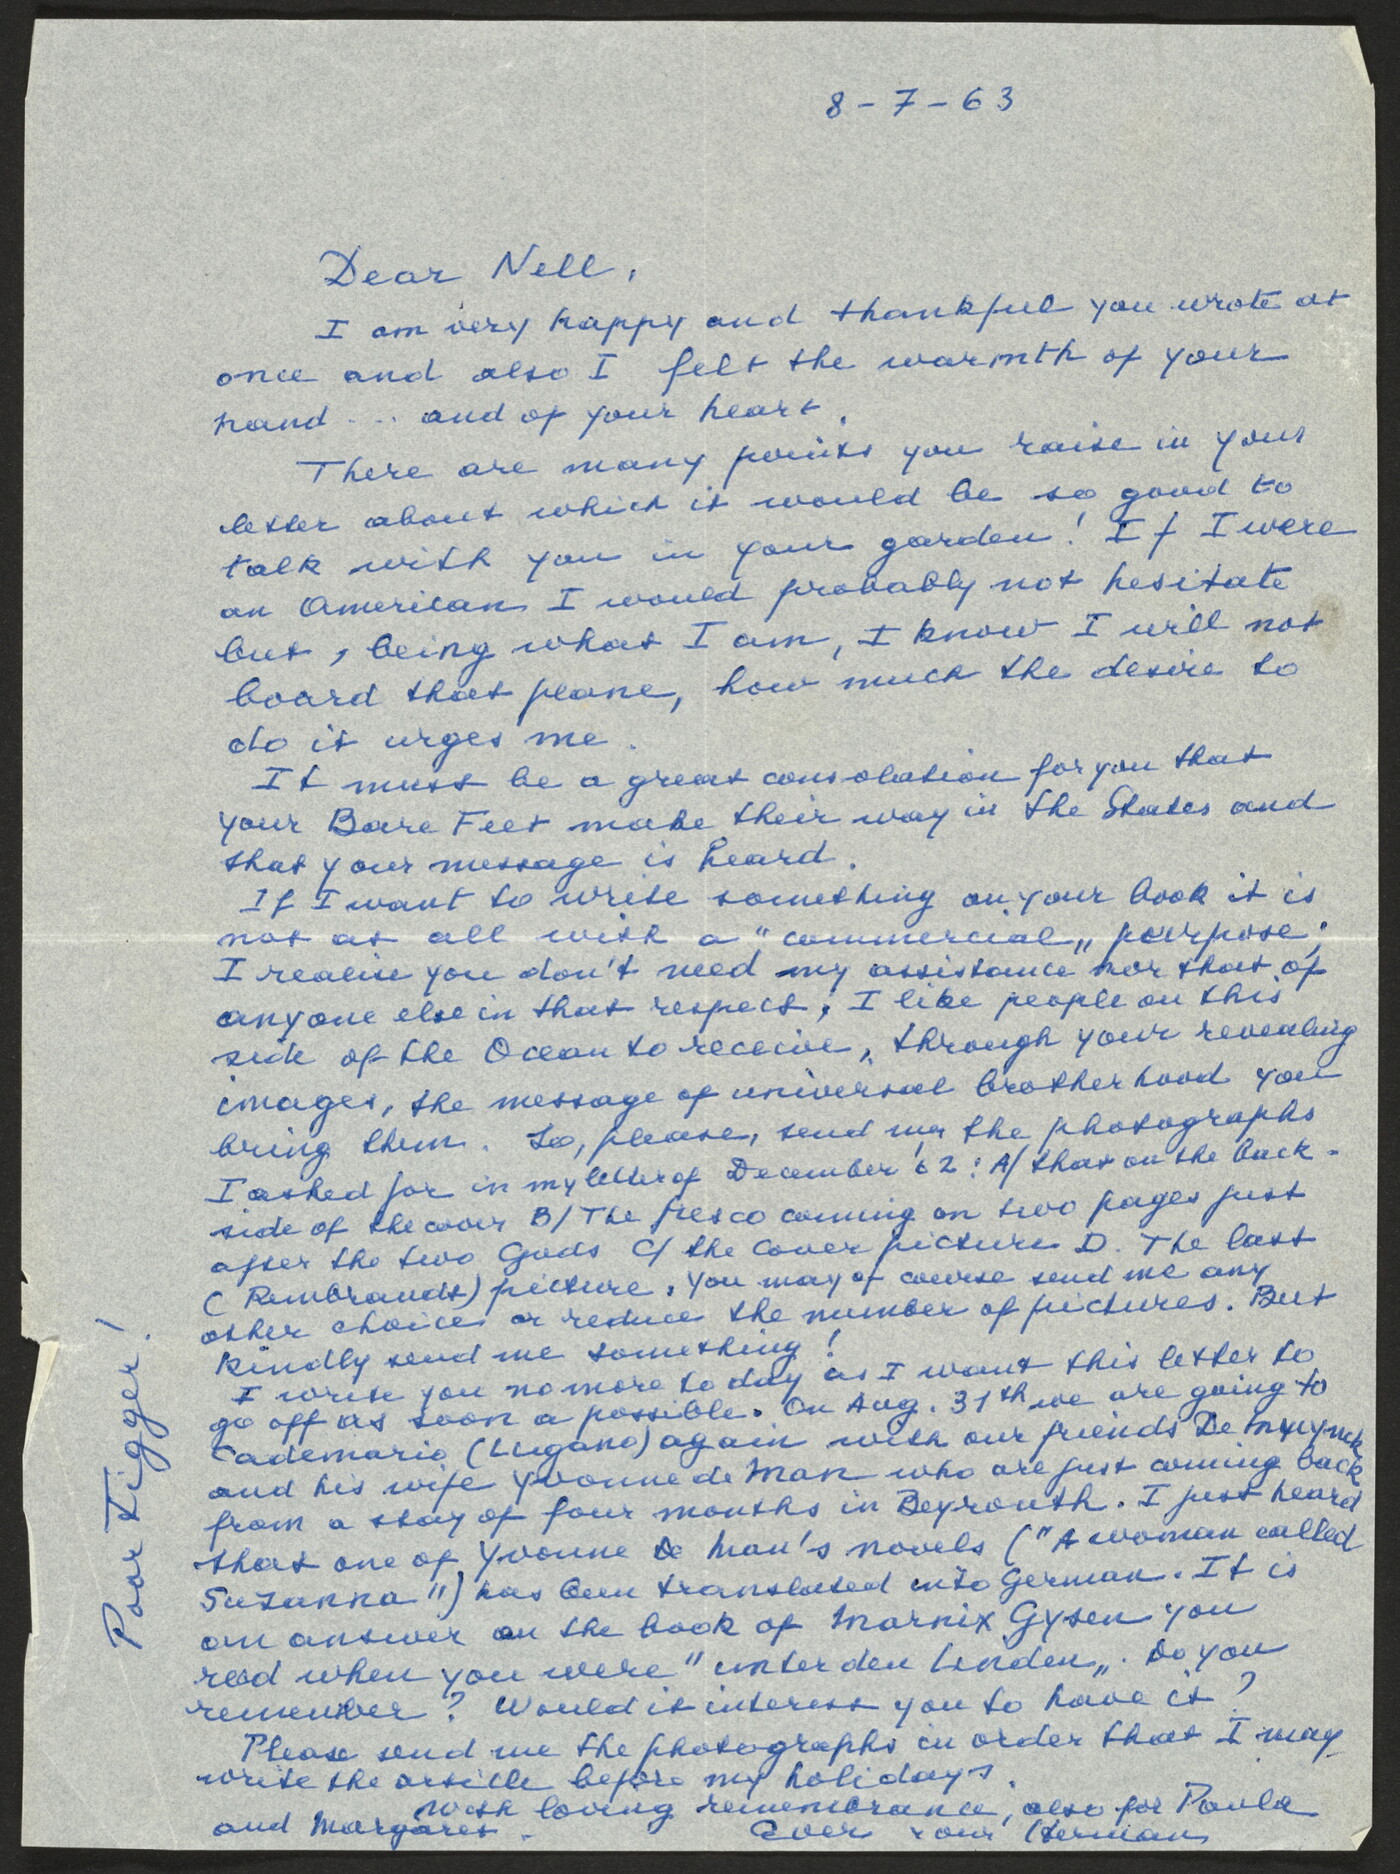 8-7-63
Dear Nell,
I am very happy and thankful you wrote at
once and also I felt the warmth of your
hand ... and of your heart.
There are many points you raise in your
letter about which it would be so good to
talk with you in your garden! If I were
an American I would probably not hesitate
but, being what I am, I know I will not
board that plane, how much the desire to
do it urges me.
It must be a great consolation for you that
your Bare Feet make their way in the States and
that your message is heard.
If I want to write something on your book it is
not at all with a "commercial„ purpose;
I realise you don't need my assistance nor that of
anyone else in that respect; I like people on this
side of the Ocean to receive, through your revealing
images, the message of universal brotherhood you
bring them. So, please, send me the photographs
I asked for in my letter of December '62: A/ that on the back-
side of the cover B/ The fresco coming on two pages just
after the two Gods C/ the Cover picture D. The last
(Rembrandt) picture. You may of course send me any
other choice or reduce the number of pictures. But
kindly send me something!
I write you no more to day as I want this letter to
go off as soon a possible. On Aug. 31th we are going to
Cademario (Lugano) again with our friends De
and his wife Yvonne de Man who are just coming back
from a stay of four months in Beyrouth. I just heard
that one of Yvonne De Man's novels ("A woman called
Suzanna") has been translated into German. It is
an answer on the book of Marnix Gysen you
read when you were "unter den Linden„. Do you
remember? Would it interest you to have it?
Please send me the photographs in order that I may
write the article before my holidays.
With loving remembrance, also for Paula
and Margaret.
Ever Your Herman
Poor Tigger!